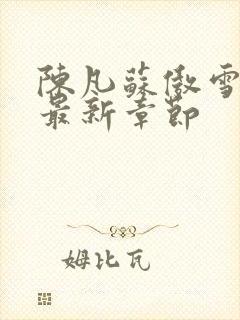 陳凡蘇傲雪
最新章節
姆比瓦